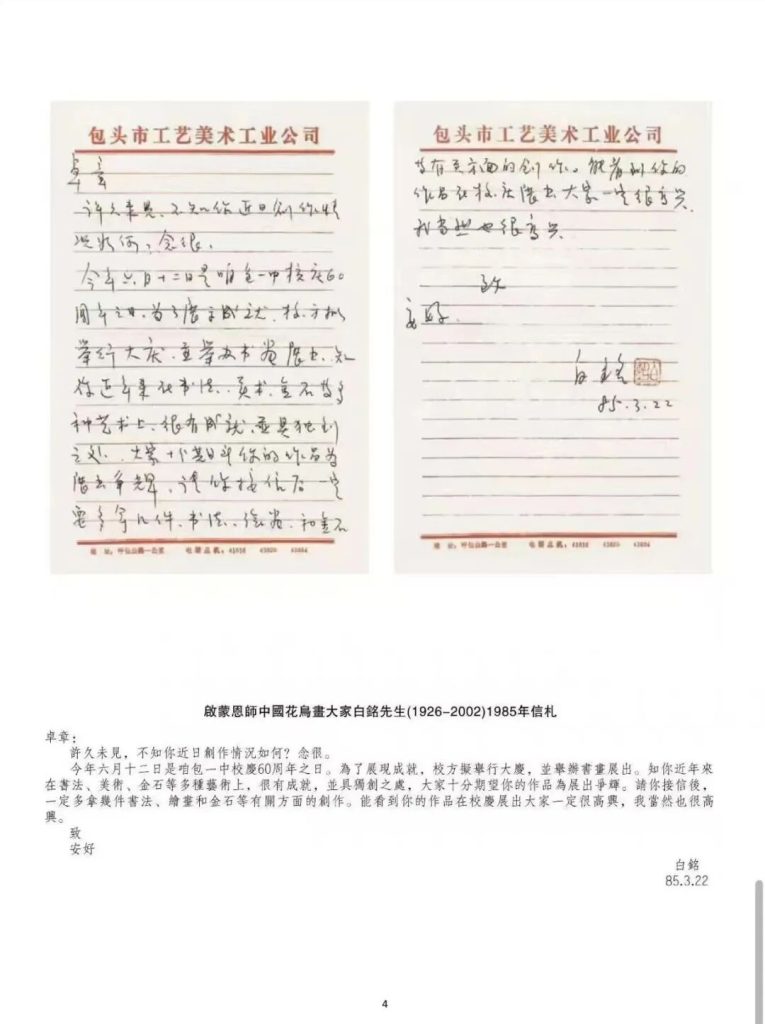 包头市工艺美术工业公司
卓章
许久未见、不知你近日创作情
况如何？念很。
今年六月十二日是咱包一中校庆60
周年之日、为了展示成就、校方拟
举行大庆、並举办书画展出、知
你近年来在书法、美术、金石等多
种艺术上、很有成就、並具独创
之处、大家十分期望你的作品为
展出争辉、请你接信后一定
要多拿几件、书法、绘画、和金石
地 址：呼包公路一公里 电 话 总 机：
包头市工艺美术工业公司
等有关方面的创作。能看到你的
作品在校庆展出大家一定很高兴、
我当然也很高兴
致
安好.
白銘
85.3.22
地 址：呼包公路一公里 电 话 总 机：
啟蒙恩師中國花鳥畫大家白銘先生(1926-2002)1985年信札
卓章：
許久未見，不知你近日創作情況如何？念很。
今年六月十二日是咱包一中校慶60周年之日。為了展現成就，校方擬舉行大慶，並舉辦書畫展出。知你近年來
在書法、美術、金石等多種藝術上，很有成就，並具獨創之處，大家十分期望你的作品為展出爭輝。請你接信後，
一定多拿幾件書法、繪畫和金石等有關方面的創作。能看到你的作品在校慶展出大家一定很高興，我當然也很高
興。
致
安好
白銘
85.3.22
4